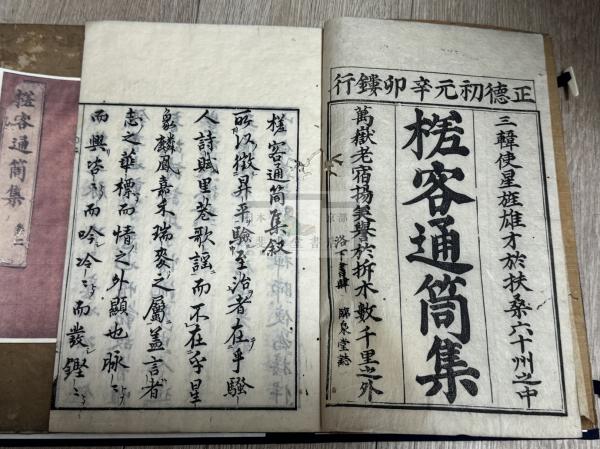 正德初元辛卯鏤行
三韓使星旌雄才於扶桑六十州之中
槎客通筒集
萬嶽老宿揚美譽於折木數千里之外
洛下書肆
槎客通筒集叙
所以徵昇平驗至治者在乎騷
人詩賦里巷歌謡而不在乎星
象麟鳳嘉禾瑞麥之屬蓋言者
志之華標而情之外顯也脉〻
而興咨〻而吟泠〻而發鏗〻
槎客通筒集